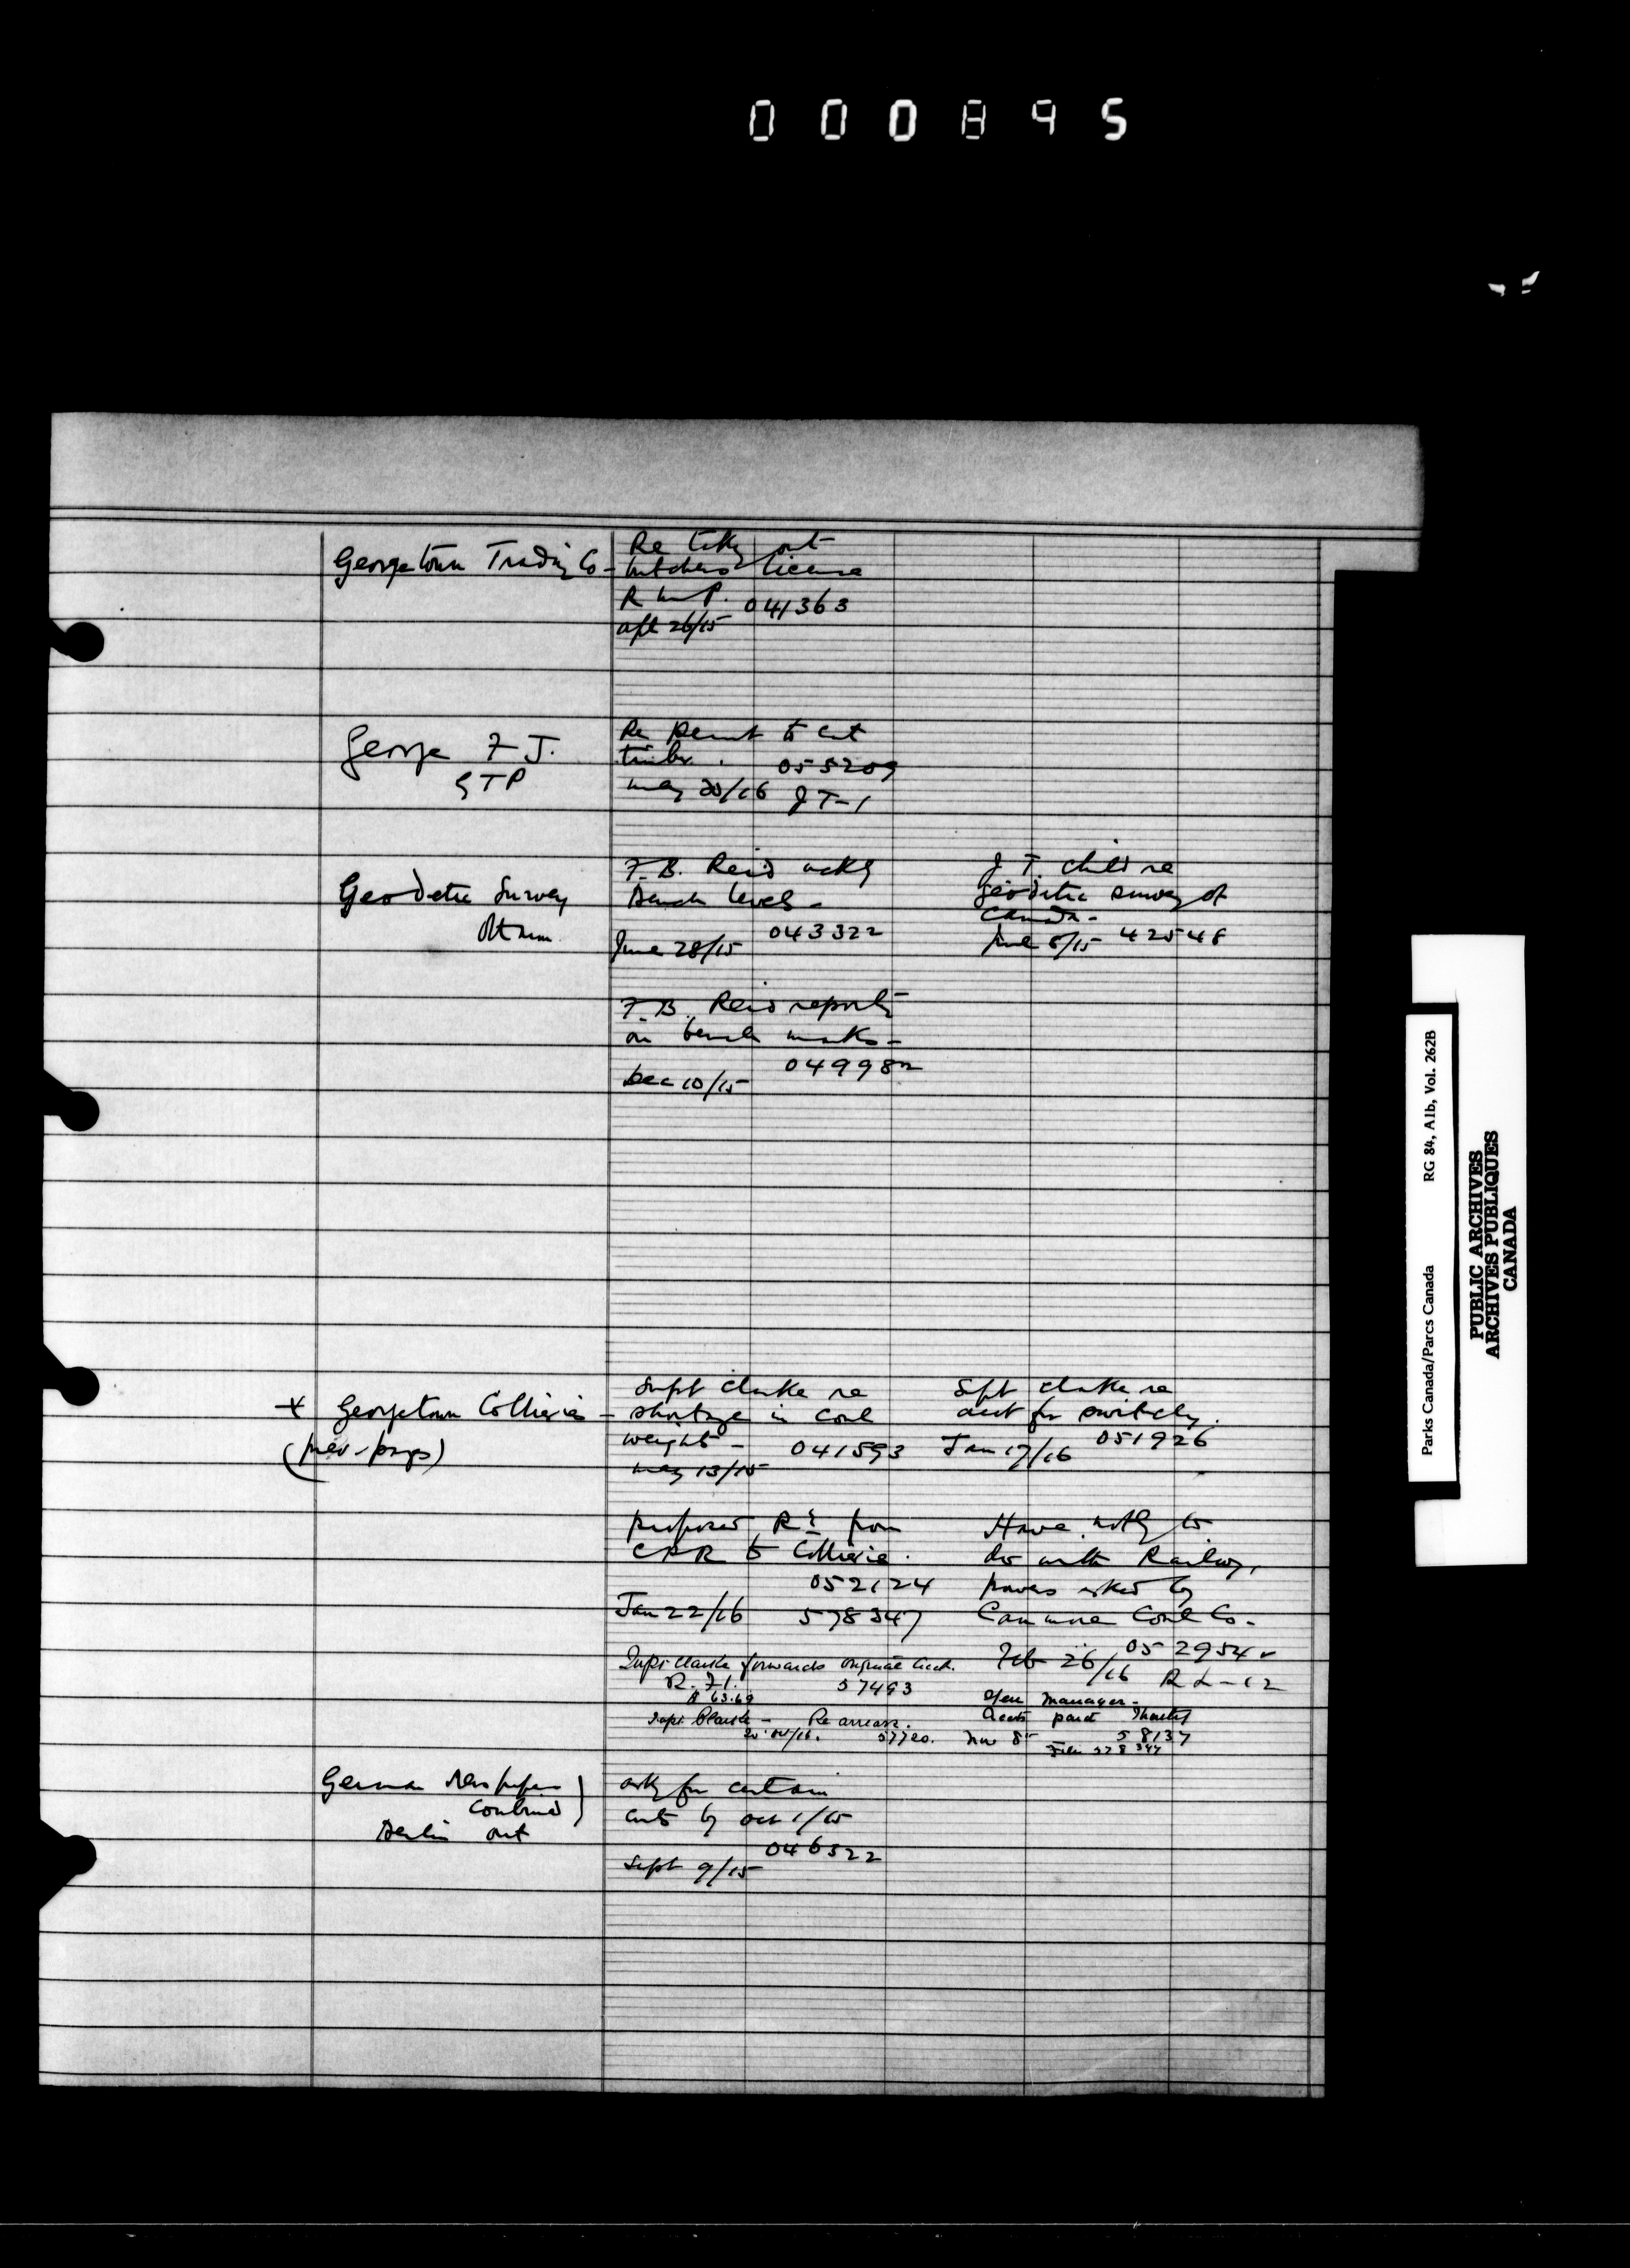 000895
Georgetown Trading Co -
Re taking out
butchers license
R M P. 041363
apl 26/15
George F J.
G T P
Re Permit to cut
timber . 055209
may 20/16 J T-1
Geodetic Survey
Ottawa
F. B. Reid
bench levels -
043322
June 28/15
J. T. Child re
geodetic survey of
Canada -
June 8/15 42548
F. B. Reid reports
on bench marks -
049982
Dec 10/15
+ Georgetown Collieries -
(prev - page)
Supt Clarke re
shortage in coal
weights - 041593
may 13/15
Supt Clarke re
acct for switching.
051926
Jan 17/16
proposed Rd from
CPR to Collierie.
052124
Jan 22/16 578347
Have nothg to
do with Railway,
powers asked by
Canmore Coal Co -
052954
Feb 26/16 R L-12
Supt Clarke forwards original acct.
R. 71. 57493
$ 63.69
Supt Clarke - Re arrears.
20 Oct/16. 57720.
Gen Manager -
Accts paid
Nov 8 58137
File 578347
German Newspapers
Combined
Berlin Ont
ask for certain
cuts by Oct 1/15
046322
Sept 9/15
Parks Canada/Parcs Canada RG 84, A1b, Vol. 262B
PUBLIC ARCHIVES
ARCHIVES PUBLIQUES
CANADA